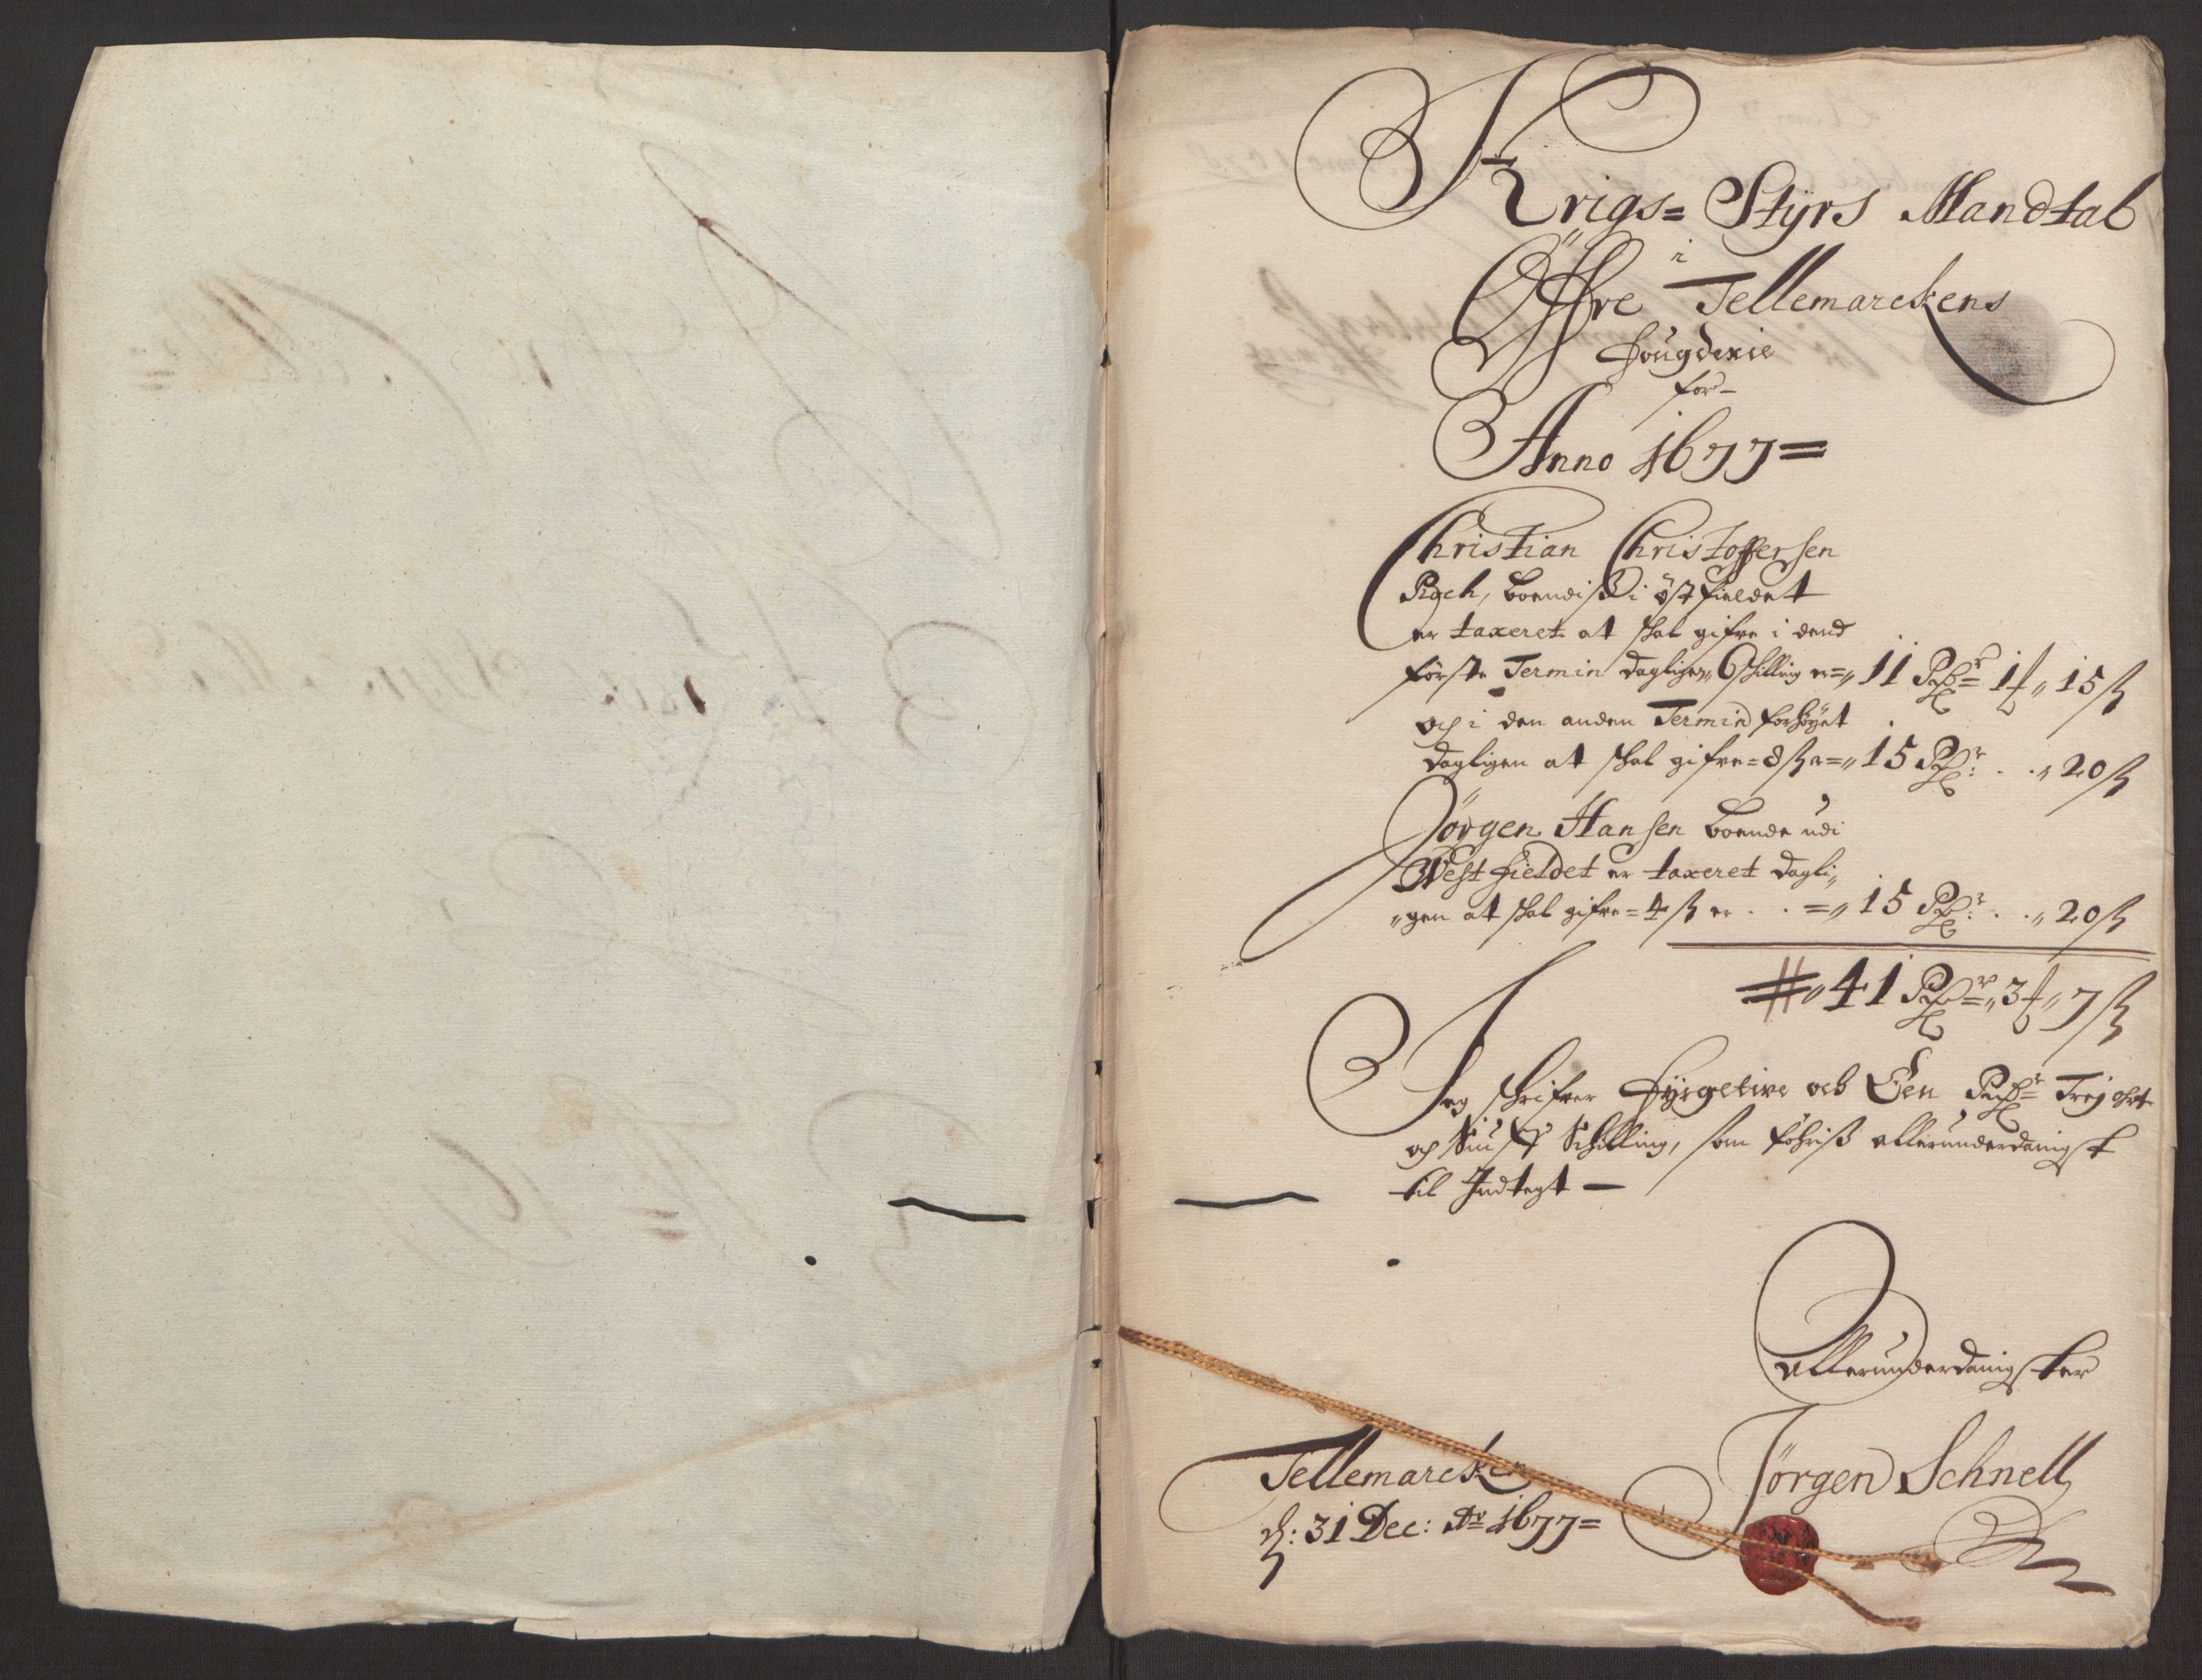 Krigs= Styrs Mandtal
i
Öffre Tellemarckens
fougderie
for
Anno 1677=
Christian Christoffersen
boendis i östfieldet
er taxeret at skal gifve i dend
förste Termin dagligen 6 skilling er= 11 Rdr 1 ort 15 ß
och i den anden Termin forhöyet
dagligen at skal gifve= 8 ß er= 15 Rdr . . 20 ß
Jörgen Hansen boende udi
Westfieldet er taxeret dagli„
„gen at skal gifve= 4 ß er . . = 15 Rdr: . . 20 ß
41 Rdr 3 ort 7 ß
Jeg skrifver Fyrgetive och Een Rdr Trej ort
och Siuf Schilling, som föhris allerunderdanigst
til Indtegt —
Allerunderdanigster
Tellemarcken
d: 31 Dec: Ao 1677=
Jörgen Schnell